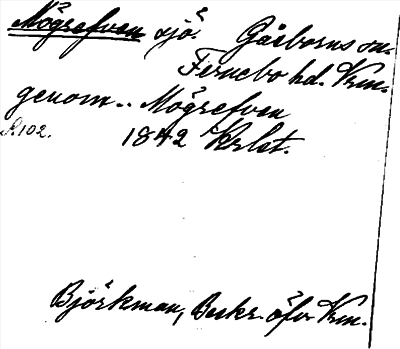 Mögrefven sjö. Gåsborns sn.
Fernebo hd. Vrm.
genom.. Mögrefven
R 102. 1842 Krlst.
Björkman, Beskr. öfv. Vrm.